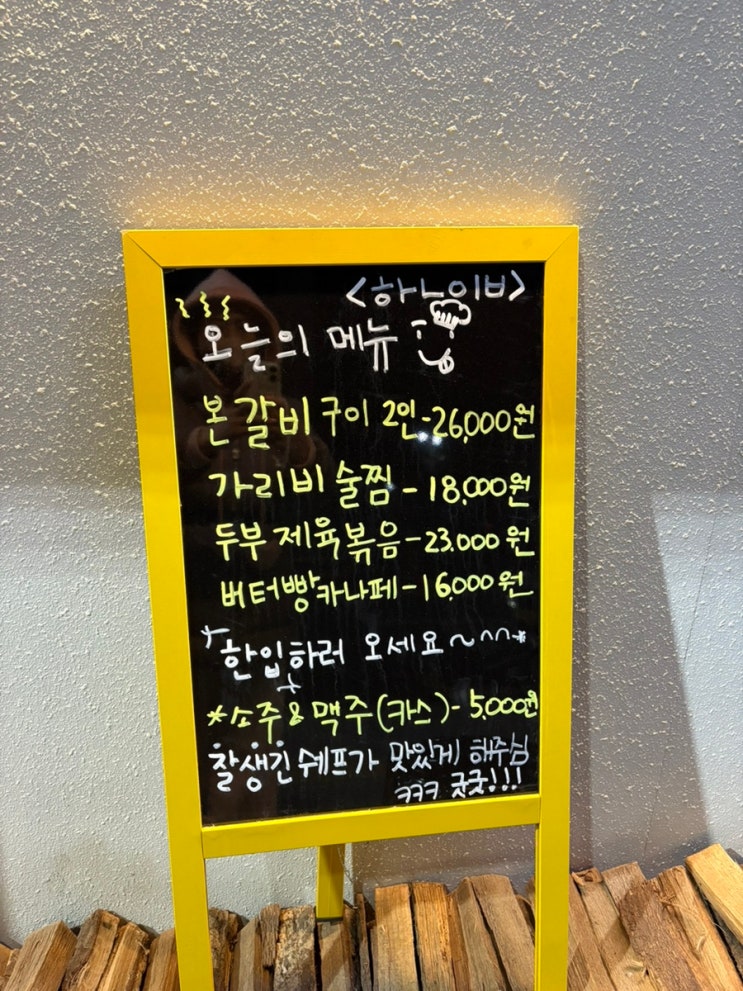 <하나이비>
오늘의 메뉴
본갈비구이 2인-26,000원
가리비 술찜 - 18,000원
두부제육볶음-23.000원
버터빵카나페-16,000원
한입하러 오세요~^^*
*소주&맥주(카스)-5,000원
잘생긴 쉐프가 맛있게 해주심
ㅋㅋㅋ 굿굿!!!